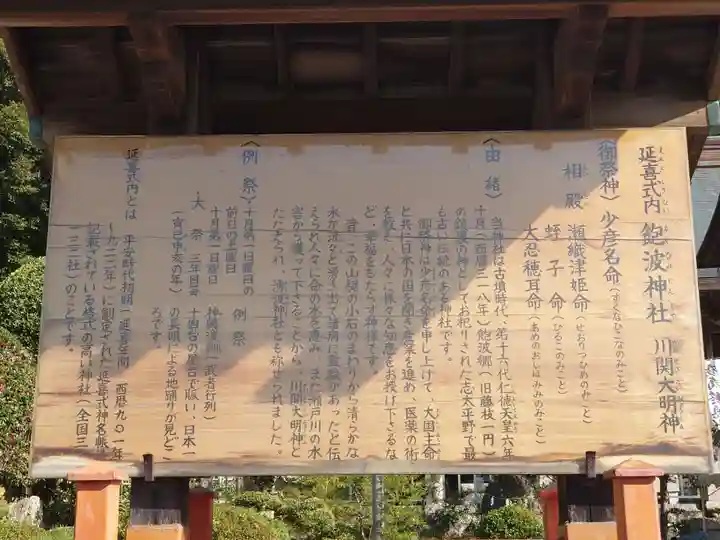 延喜式内 飽波神社 川関大明神
(御祭神) 少彦名命(すくなひこなのみこと)
相殿 瀬織津姫命(せおりつひめのみこと)
蛭子命(ひるこのみこと)
大忍穂耳命(あめのおしほみみのみこと)
(由緒)
当神社は古墳時代、第十六代仁徳天皇六年
十月(西暦三一八年)飽波郷(旧藤枝一円)
の鎮護の神としてお祀りされた志太平野で最
も古い伝統のある神社です。
御祭神は少彦名命を申し上げて、大国主命
と共に日本の国を開き産業を進め、医薬の術
を教え、人々に様々な知恵をお授け下さるな
ど、幸福をもたらす神様です。
昔、この山裾の小石のまわりから清らかな
水が流々と湧き出て諸病に霊験があったと伝
えられ人々に命の水を恵み、また瀬戸川の水
害から護って下さることから、川関大明神と
たたえられ、湯波神社とも称えられました。
(例祭)十月第二日曜日の
前日の土曜日 例祭
十月第二日曜日 神輿渡御(武者行列)
大祭 三年目毎 十四台の屋台で賑い、日本一
(寅巳申亥の年) の長唄による地踊りが見どこ
ろです。
延喜式内とは 平安時代初期(延喜年間 西暦九〇一年
〜九二二年)に制定された延喜式神名帳に
記載されている格式の高い神社(全国三
一三二社)のことです。